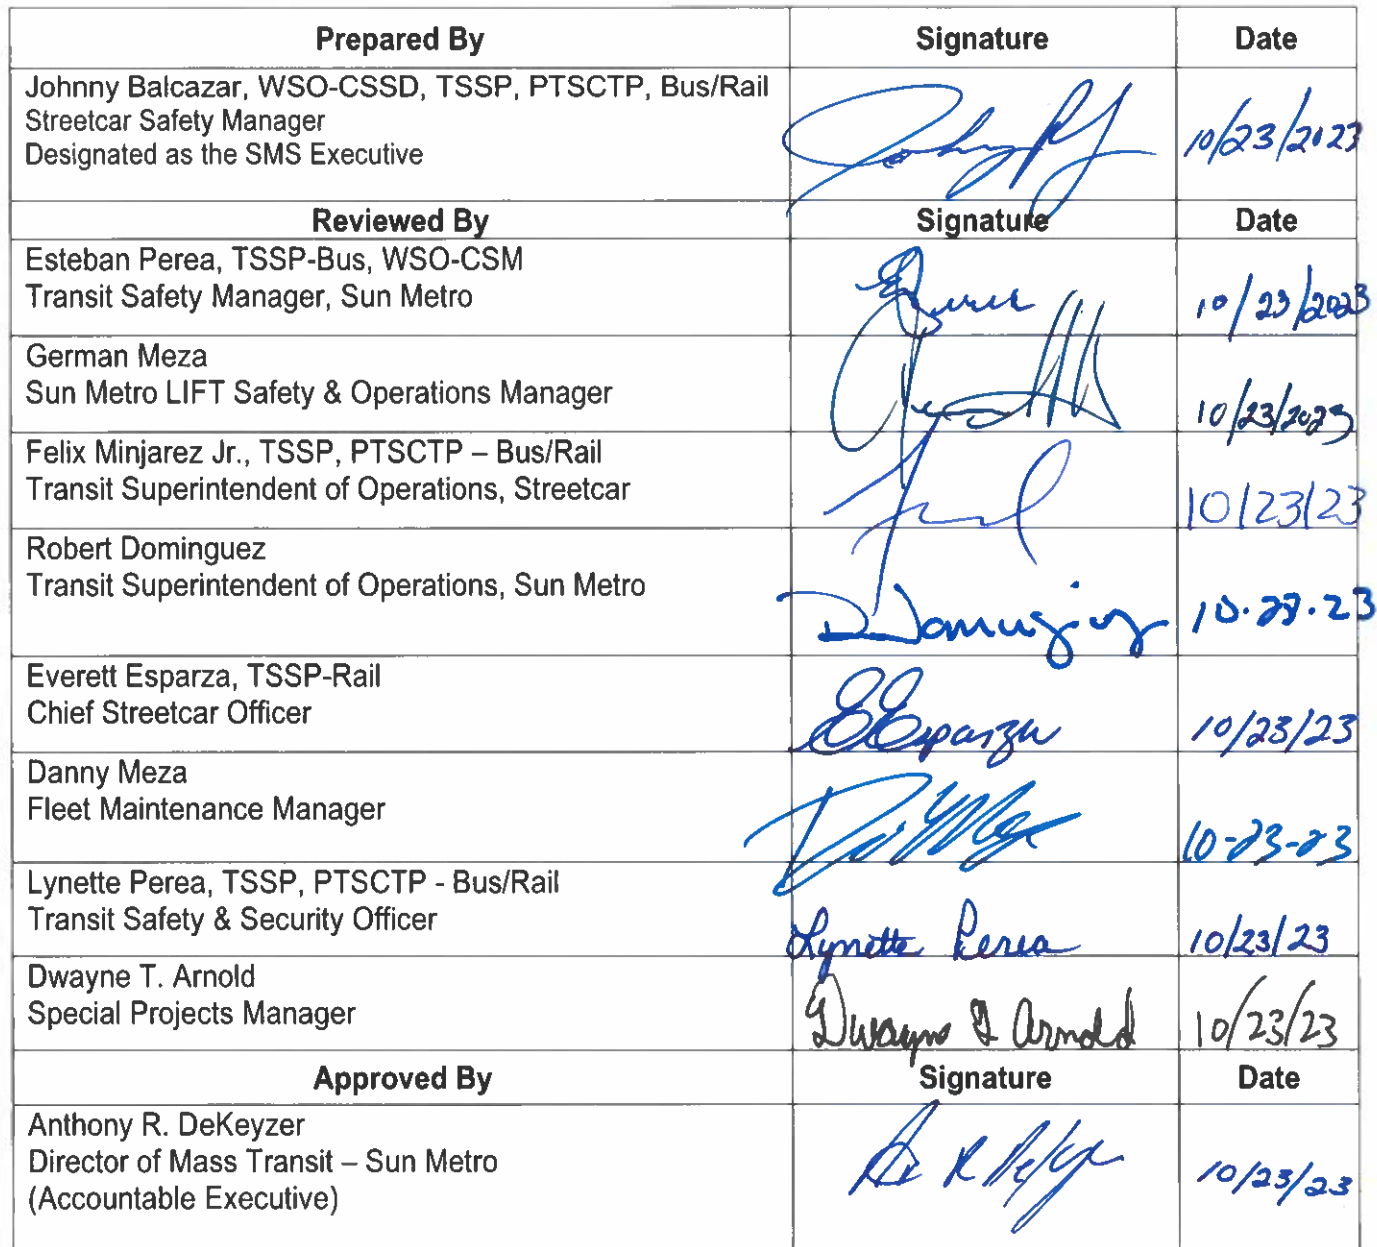 Prepared By Signature Date
Johnny Balcazar, WSO-CSSD, TSSP, PTSCTP, Bus/Rail
Streetcar Safety Manager 10/23/2023
Designated as the SMS Executive
Reviewed By Signature Date
Esteban Perea, TSSP-Bus, WSO-CSM
Transit Safety Manager, Sun Metro 10/23/2023
German Meza
Sun Metro LIFT Safety & Operations Manager 10/23/2023
Felix Minjarez Jr., TSSP, PTSCTP – Bus/Rail
Transit Superintendent of Operations, Streetcar 10/23/23
Robert Dominguez
Transit Superintendent of Operations, Sun Metro
Everett Esparza, TSSP-Rail
Chief Streetcar Officer EEsparza 10/23/23
Danny Meza
Fleet Maintenance Manager 10-23-23
Lynette Perea, TSSP, PTSCTP - Bus/Rail
Transit Safety & Security Officer Lynette Perea 10/23/23
Dwayne T. Arnold
Special Projects Manager Dwayne T Arnold 10/23/23
Approved By Signature Date
Anthony R. DeKeyzer
Director of Mass Transit – Sun Metro
(Accountable Executive) 10/23/23